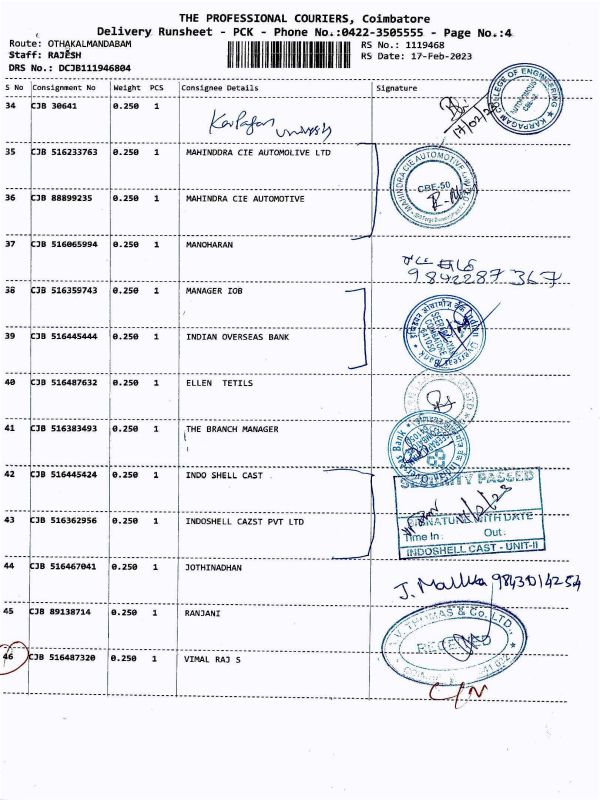 THE PROFESSIONAL COURIERS, Coimbatore
Delivery Runsheet - PCK - Phone No.:0422-3505555 - Page No.:4
Route: OTHAKALMANDABAM RS No.: 1119468
Staff: RAJESH RS Date: 17-Feb-2023
DRS No.: DCJB111946804
S No Consignment No Weight PCS Consignee Details Signature
34 CJB 30641 0.250 1 Karpagam University 17/02/23
COLLEGE OF ENGINEERING KARPAGAM AUTONOMOUS
35 CJB 516233763 0.250 1 MAHINDDRA CIE AUTOMOLIVE LTD
MAHINDRA CIE AUTOMOTIVE LIMITED CBE-50
36 CJB 88899235 0.250 1 MAHINDRA CIE AUTOMOTIVE
37 CJB 516065994 0.250 1 MANOHARAN
9842287367
38 CJB 516359743 0.250 1 MANAGER IOB
Indian Overseas Bank
39 CJB 516445444 0.250 1 INDIAN OVERSEAS BANK
40 CJB 516487632 0.250 1 ELLEN TETILS
41 CJB 516383493 0.250 1 THE BRANCH MANAGER
42 CJB 516445424 0.250 1 INDO SHELL CAST
SECURITY PASSED
43 CJB 516362956 0.250 1 INDOSHELL CAZST PVT LTD
SIGNATURE WITH DATE
Time In: Out:
INDOSHELL CAST - UNIT-II
44 CJB 516467041 0.250 1 JOTHINADHAN
J. Mallika 9843014254
45 CJB 89138714 0.250 1 RANJANI
THOMAS & Co. LTD.,
RECEIVED
46 CJB 516487320 0.250 1 VIMAL RAJ S
C/N